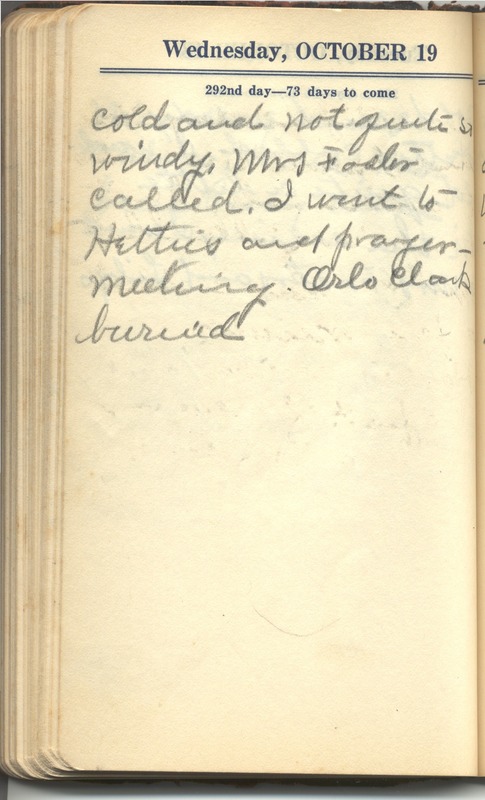 Wednesday, OCTOBER 19
292nd day—73 days to come
cold and not quite so
windy. Mrs Foster
called. I went to
Hetties and prayer-
meeting. Orlo Clark
buried